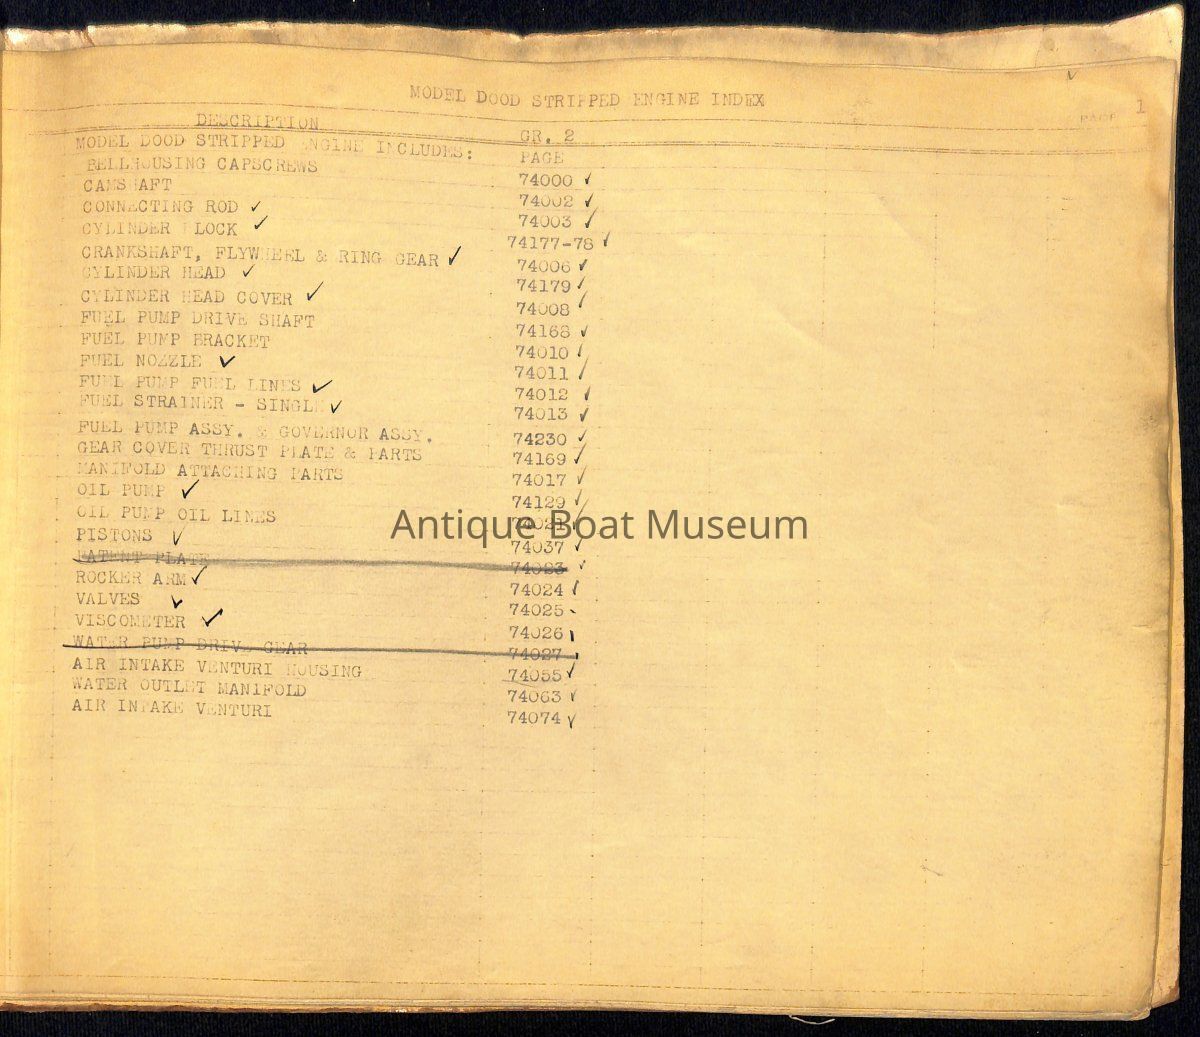 MODEL DOOD STRIPPED ENGINE INDEX
PAGE 1
DESCRIPTION GR. 2
MODEL DOOD STRIPPED ENGINE INCLUDES: PAGE
BELLHOUSING CAPSCREWS 74000 ✓
CAMSHAFT 74002 ✓
CONNECTING ROD ✓ 74003 ✓
CYLINDER BLOCK ✓ 74177-78 ✓
CRANKSHAFT, FLYWHEEL & RING GEAR ✓ 74006 ✓
CYLINDER HEAD ✓ 74179 ✓
CYLINDER HEAD COVER ✓ 74008 ✓
FUEL PUMP DRIVE SHAFT 74168 ✓
FUEL PUMP BRACKET 74010 ✓
FUEL NOZZLE ✓ 74011 ✓
FUEL PUMP FUEL LINES ✓ 74012 ✓
FUEL STRAINER - SINGLE ✓ 74013 ✓
FUEL PUMP ASSY. & GOVERNOR ASSY. 74230 ✓
GEAR COVER THRUST PLATE & PARTS 74169 ✓
MANIFOLD ATTACHING PARTS 74017 ✓
OIL PUMP ✓ 74129 ✓
OIL PUMP OIL LINES 74021 ✓
Antique Boat Museum
PISTONS ✓ 74037 ✓
PATENT PLATE 74023 ✓
ROCKER ARM ✓ 74024 ✓
VALVES ✓ 74025 ✓
VISCOMETER ✓ 74026 ✓
WATER PUMP DRIVE GEAR 74027
AIR INTAKE VENTURI HOUSING 74055 ✓
WATER OUTLET MANIFOLD 74063 ✓
AIR INTAKE VENTURI 74074 ✓